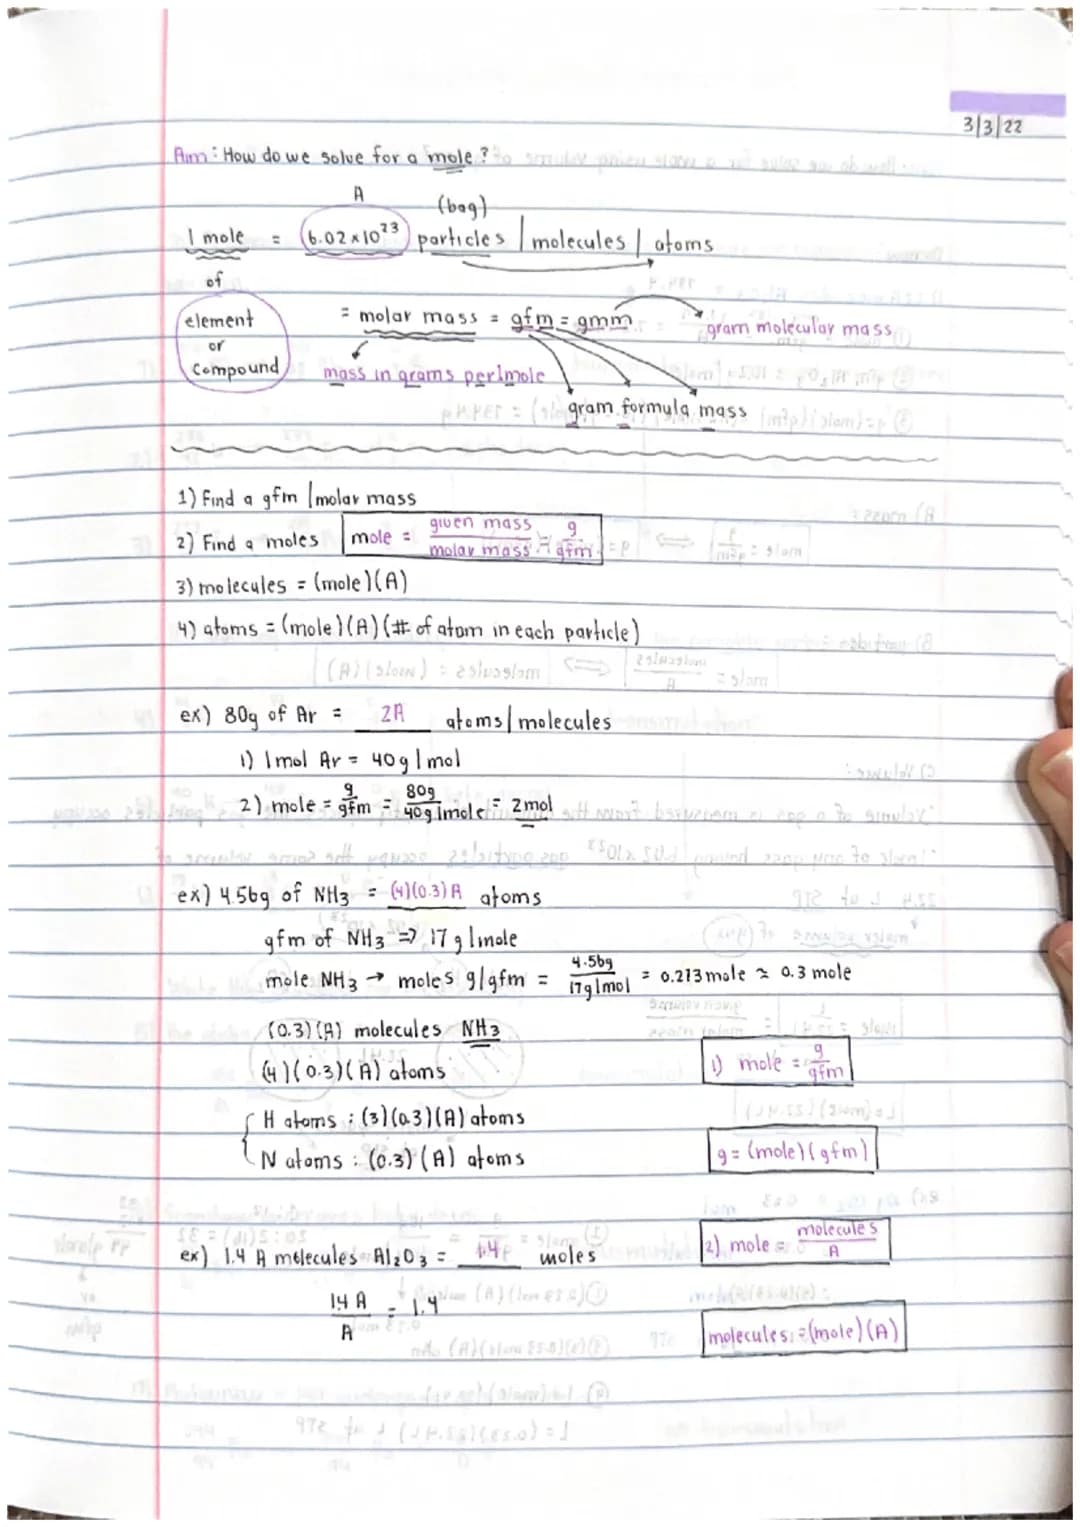 3/3/22
Aim: How do we solve for a mole?
A
(bag)
1 mole = 6.02 x 10²³ particles / molecules / atoms
of
element
or
compound
= molar mass = gfm = gmm
gram molecular mass
mass in grams per 1 mole
gram formula mass
1) Find a gfm / molar mass
2) Find a moles mole = given mass / molar mass = g / gfm
3) molecules = (mole)(A)
4) atoms = (mole)(A)(# of atom in each particle)
ex) 80g of Ar = 2A atoms / molecules
1) 1 mol Ar = 40g / mol
2) mole = g / gfm = 80g / 40g/mole = 2 mol
ex) 4.56g of NH₃ = (4)(0.3) A atoms
gfm of NH₃ => 17 g/mole
mole NH₃ → moles g/gfm = 4.56g / 17g/mol = 0.273 mole ≈ 0.3 mole
(0.3)(A) molecules NH₃
(4)(0.3)(A) atoms
1) mole = g / gfm
H atoms : (3)(0.3)(A) atoms
N atoms : (0.3)(A) atoms
g = (mole)(gfm)
ex) 1.4 A molecules Al₂O₃ = 1.4 moles
2) mole = molecules / A
1.4 A / A = 1.4
molecules = (mole)(A)